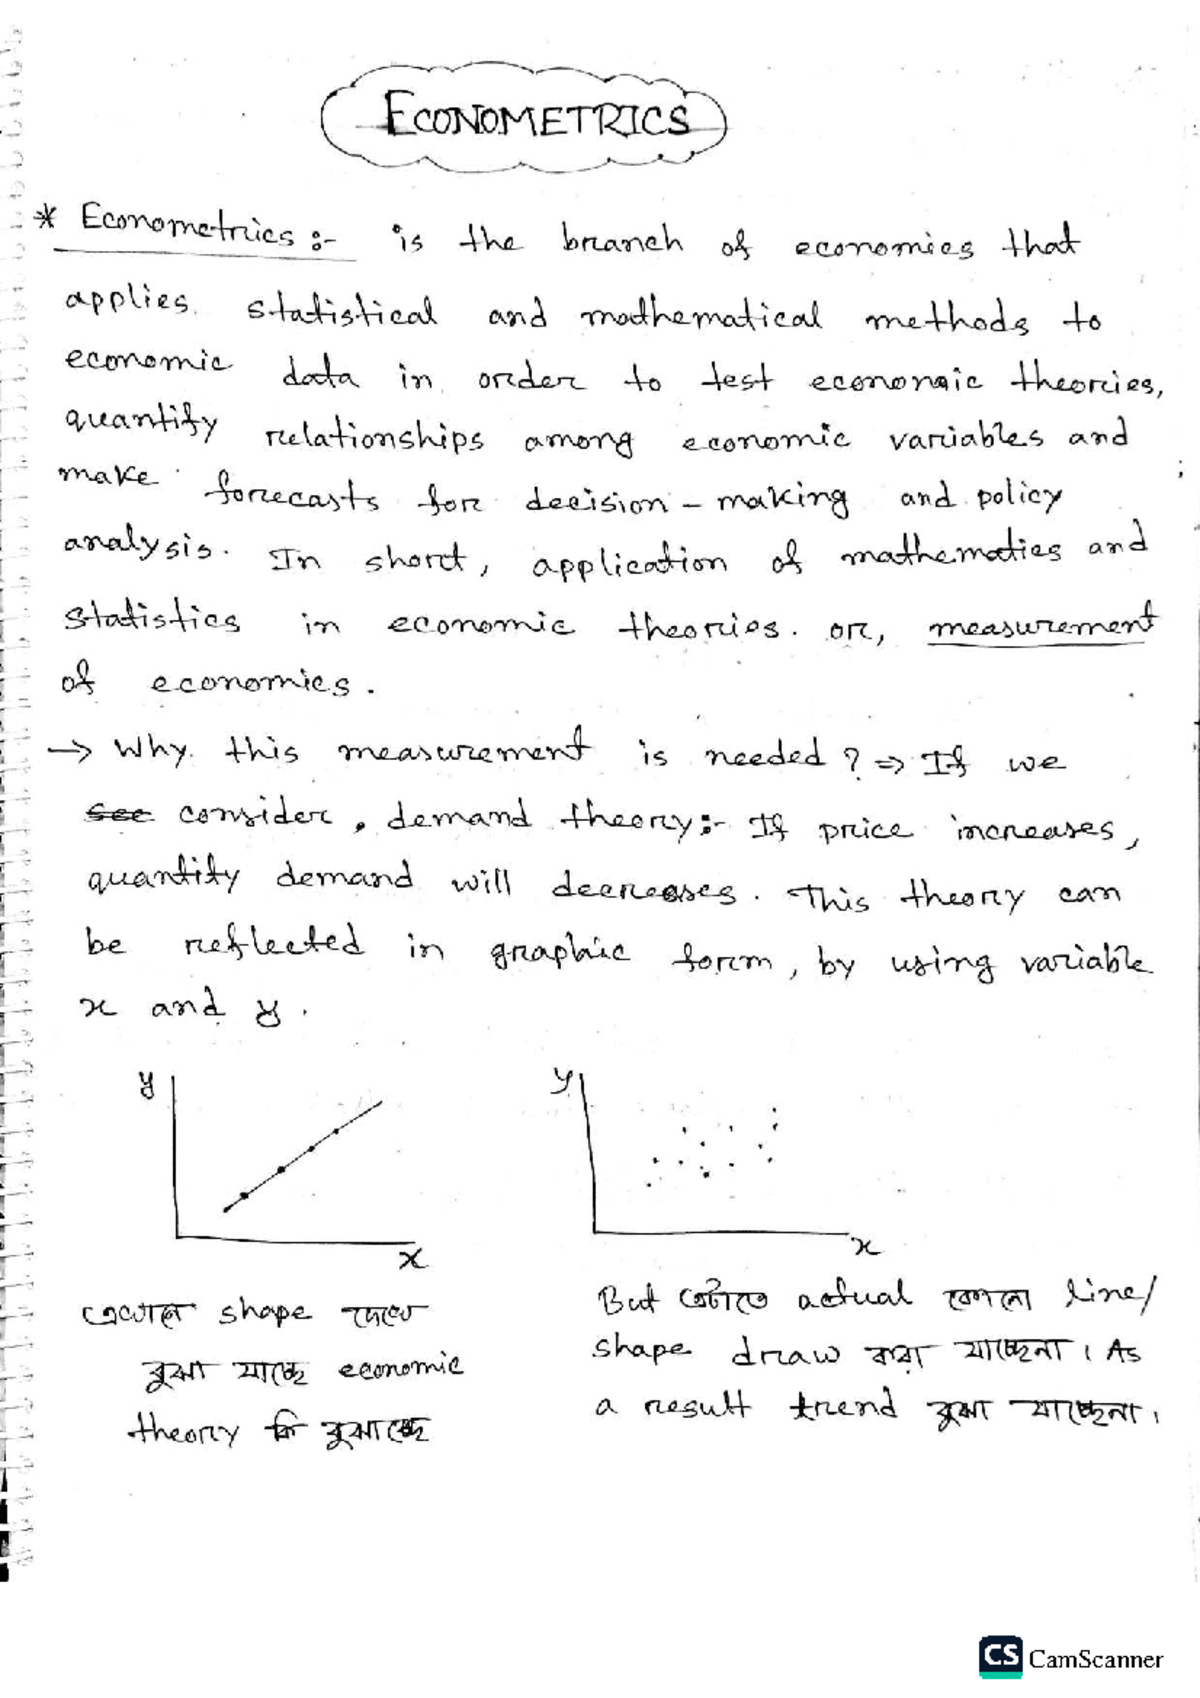 ECONOMETRICS
* Econometrics :- is the branch of economics that
applies statistical and mathematical methods to
economic data in order to test economic theories,
quantify relationships among economic variables and
make forecasts for decision-making and policy
analysis. In short, application of mathematics and
statistics in economic theories. or, measurement
of economics.
→ Why this measurement is needed? ⇒ If we
see consider, demand theory:- If price increases,
quantity demand will decreases. This theory can
be reflected in graphic form, by using variable
x and y.
y
x
y
x
এখানে shape দেখে
বুঝা যাচ্ছে economic
theory কি বুঝাচ্ছে
But এটাতে actual কোনো line/
shape draw করা যাচ্ছেনা। As
a result trend বুঝা যাচ্ছেনা।
CS CamScanner